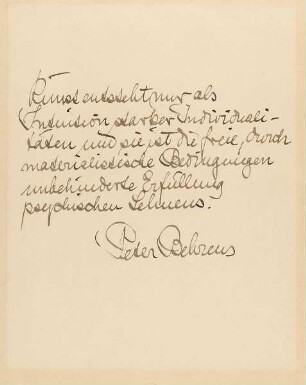 Kunst entsteht nur als
Intuition starker Individuali-
täten, und sie ist die freie, durch
materialistische Bedingungen
unbehinderte Erfüllung
psychischen Sehnens.
Peter Behrens